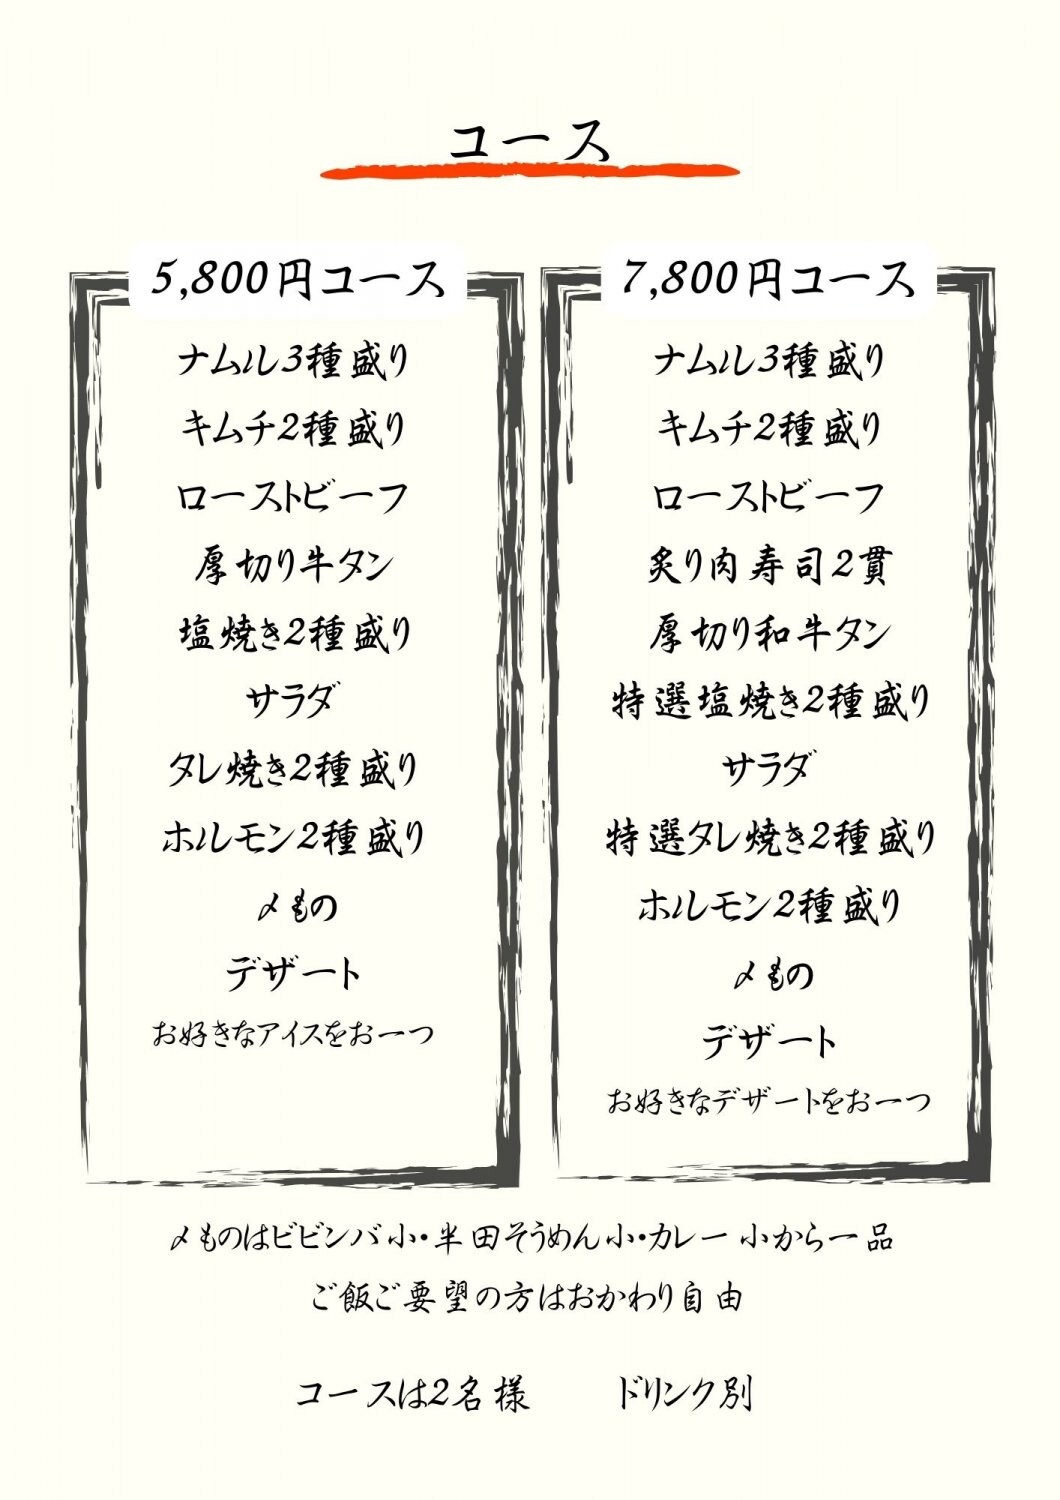 コース
5,800円コース
ナムル3種盛り
キムチ2種盛り
ローストビーフ
厚切り牛タン
塩焼き2種盛り
サラダ
タレ焼き2種盛り
ホルモン2種盛り
〆もの
デザート
お好きなアイスをお一つ
7,800円コース
ナムル3種盛り
キムチ2種盛り
ローストビーフ
炙り肉寿司2貫
厚切り和牛タン
特選塩焼き2種盛り
サラダ
特選タレ焼き2種盛り
ホルモン2種盛り
〆もの
デザート
お好きなデザートをお一つ
〆ものはビビンバ小・半田そうめん小・カレー小から一品
ご飯ご要望の方はおかわり自由
コースは2名様 ドリンク別